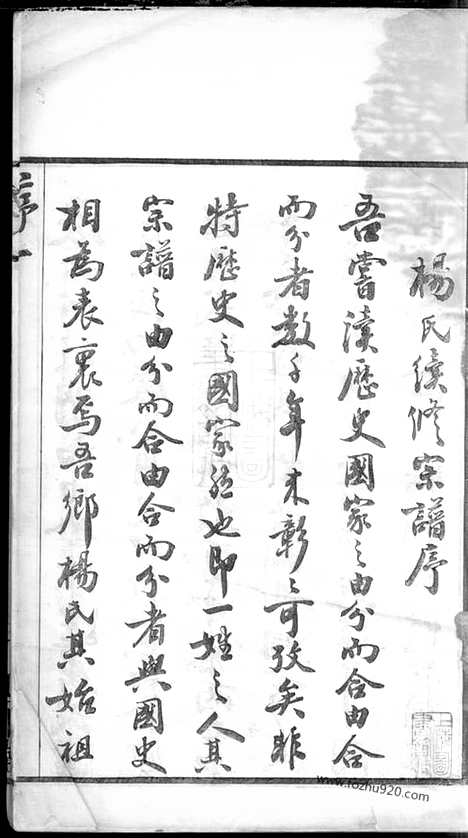 楊氏續修宗譜序
吾嘗讀歷史國家之由分而合由合
而分者數千年來彰彰可攷矣非
特歷史之國家然也即一姓之人其
宗譜之由分而合由合而分者與國史
相為表裏焉吾鄉楊氏其始祖
序一
www.fozhu920.com